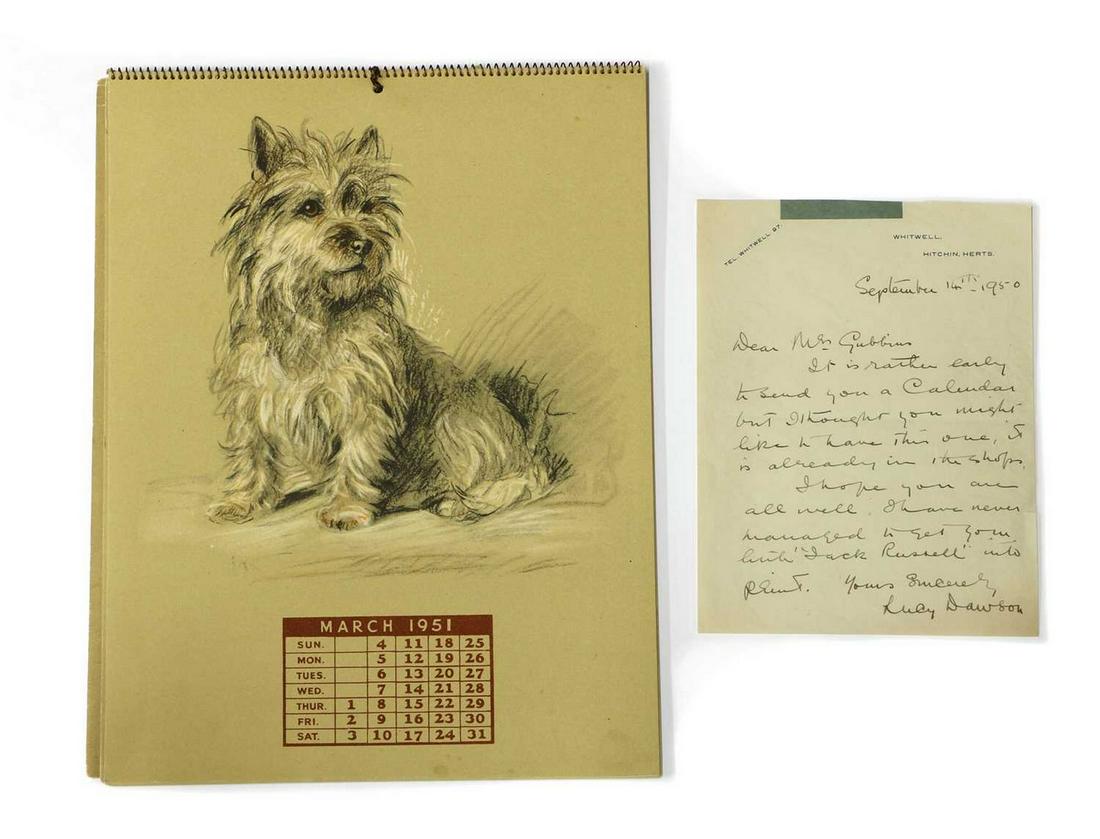 MARCH 1951
SUN. 4 11 18 25
MON. 5 12 19 26
TUES. 6 13 20 27
WED. 7 14 21 28
THUR. 1 8 15 22 29
FRI. 2 9 16 23 30
SAT. 3 10 17 24 31
TEL. WHITWELL 87.
WHITWELL,
HITCHIN, HERTS.
September 14th 1950
Dear Mrs Gubbins
It is rather early
to send you a Calendar
but I thought you might
like to have this one, it
is already in the shops.
I hope you are
all well. I have never
managed to get your
little "Jack Russell" into
print. Yours Sincerely,
Lucy Dawson